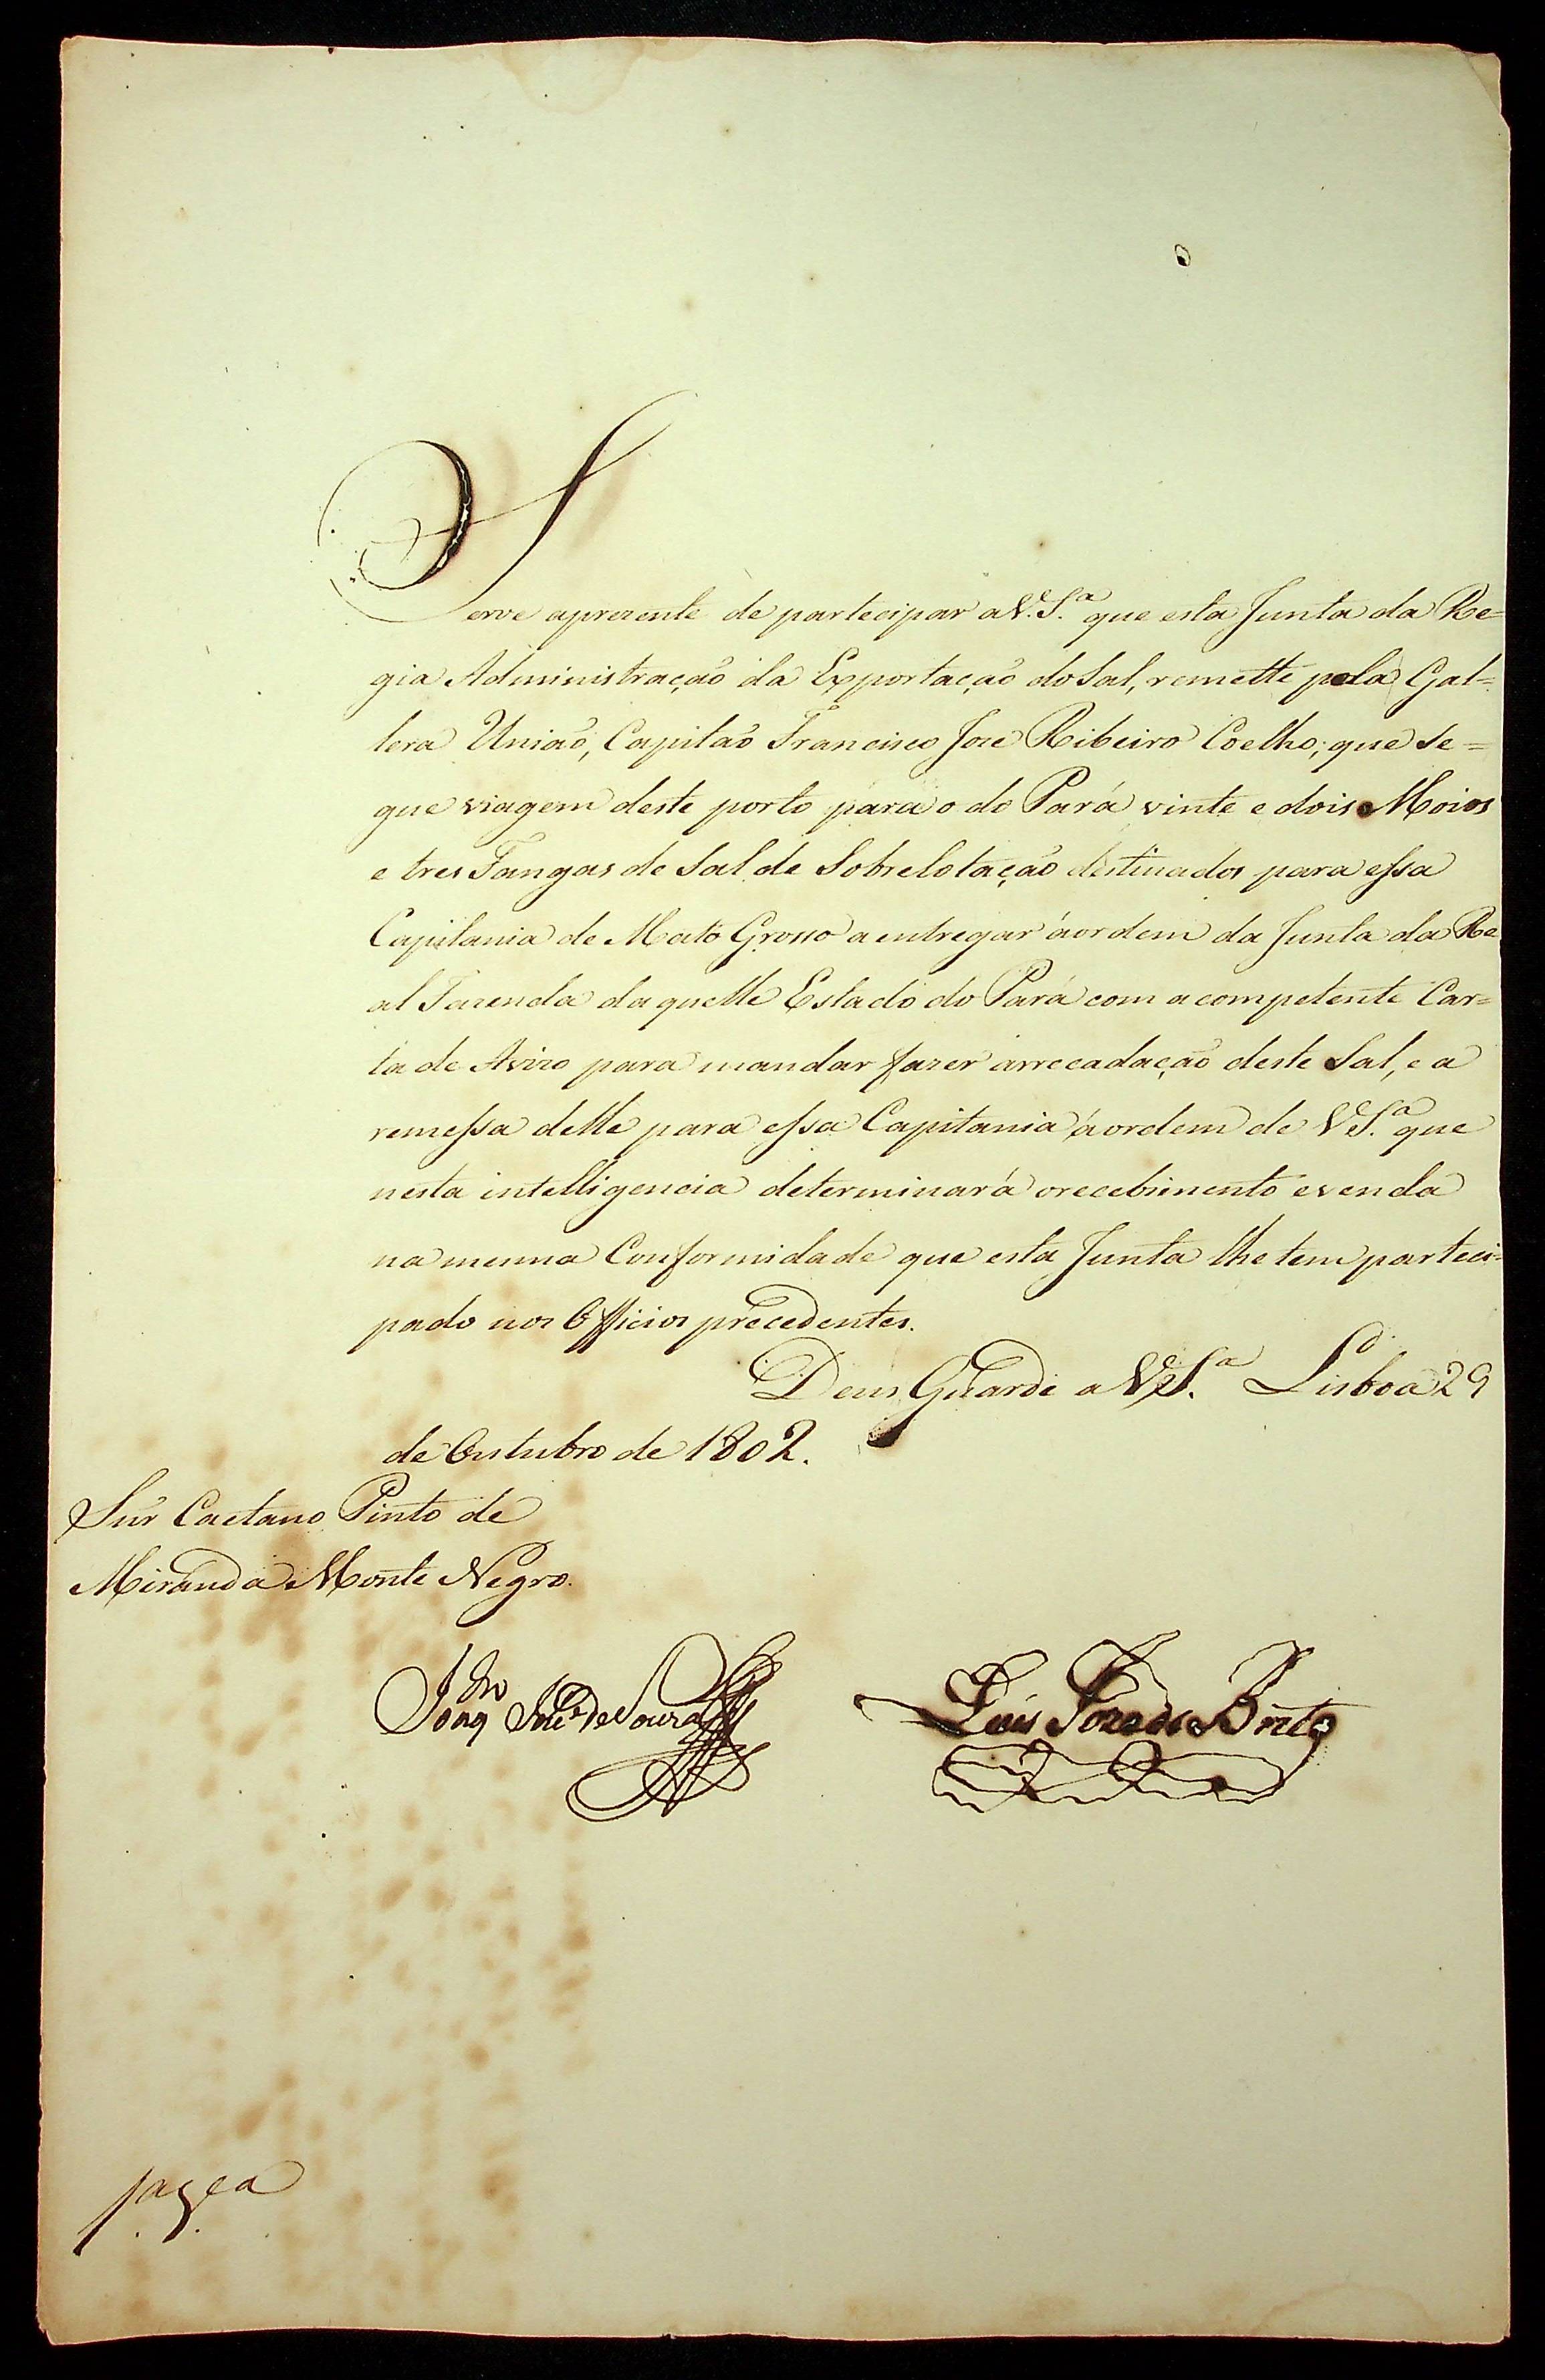 Serve aprezente de partecipar a V. S.ª que esta Junta da Re=
gia Administração da Exportação do Sal, remette pela Gal=
lera União, Capitão Francisco Joze Ribeiro Coelho; que se=
gue viagem deste porto para o do Pará vinte e dois Moios
e tres Fangas de Sal de Sobrelotação destinados para essa
Capitania de Mato Grosso a entregar á ordem da Junta da Re
al Fazenda daquelle Estado do Pará com a competente Car=
ta de Avizo para mandar fazer arrecadação deste Sal, e a
remessa delle para essa Capitania á ordem de V S.ª que
nesta intelligencia determinará o recebimento e venda
na mesma Conformidade que esta Junta lhe tem parteci=
pado nos Officios precedentes.
Deus Guarde a V S.ª Lisboa 29
de Outubro de 1802.
Snr Caetano Pinto de
Miranda Monte Negro.
Joze de Souza
Luis Joze de Brito